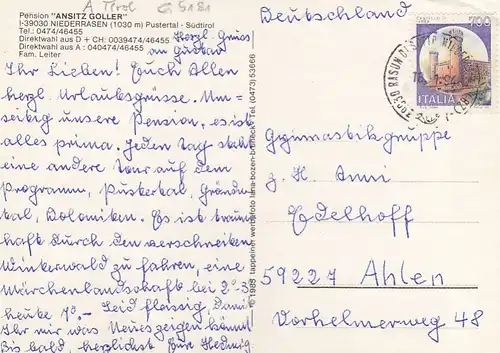 A Tirol G 5181
Pension "ANSITZ GOLLER"
I-39030 NIEDERRASEN (1030 m) Pustertal - Südtirol
Tel.: 0474/46455
Direktwahl aus D + CH: 0039474/46455
Direktwahl aus A: 040474/46455
Fam. Leiter
Herzl. Gruss
an Gustav
Ihr Lieben! Euch Allen
herzl. Urlaubsgrüsse. Um-
seitig unsere Pension, es ist
alles prima. Jeden Tag steht
eine andere Tour auf dem
Programm, Pustertal, Gründner-
tal, Dolomiten. Es ist traum
haft durch den verschneiten
Winterwald zu fahren, eine
Märchenlandschaft bei 2°-3°
heute 7°.- Seid fleissig, damit
Ihr mir was Neues zeigen könnt.
Bis bald, herzlichst Eure Hedwig
© 1988 tappeiner werbefoto lana-bozen-bruneck Tel. (0473) 53666
Deutschland
700
ITALIA
39030 RASUN DI SOTTO
Gymnastikgruppe
z. H. Anni
Edelhoff
59227 Ahlen
Vorhelmerweg 48